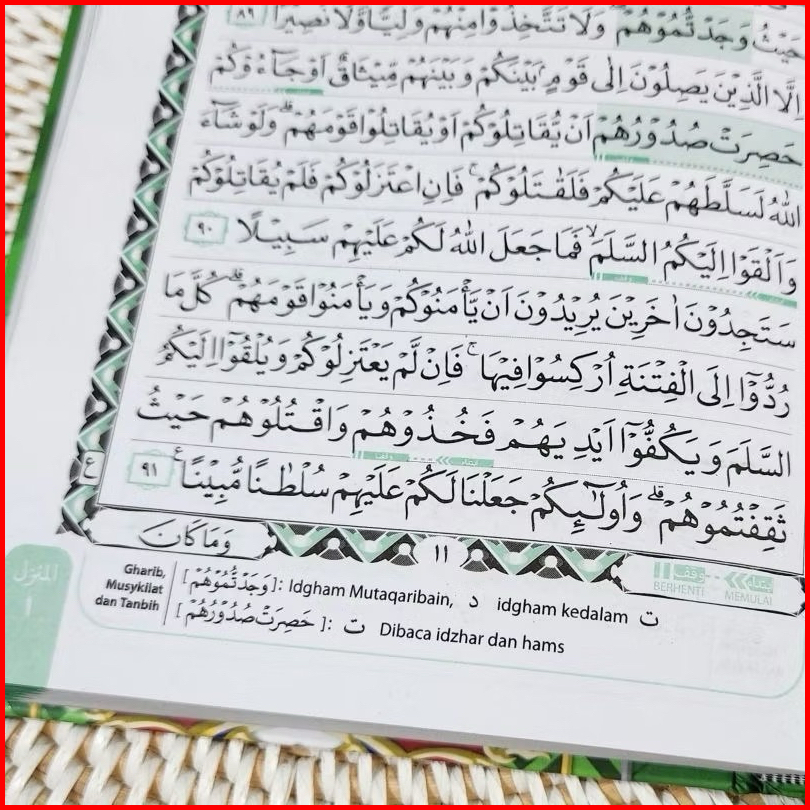 حَيْثُ وَجَدْتُّمُوْهُمْ وَلَا تَتَّخِذُوْا مِنْهُمْ وَلِيًّا وَّلَا نَصِيْرًا ٨٩
اِلَّا الَّذِيْنَ يَصِلُوْنَ اِلٰى قَوْمٍۢ بَيْنَكُمْ وَبَيْنَهُمْ مِّيْثَاقٌ اَوْ جَاۤءُوْكُمْ
حَصِرَتْ صُدُوْرُهُمْ اَنْ يُّقَاتِلُوْكُمْ اَوْ يُقَاتِلُوْا قَوْمَهُمْ ۗ وَلَوْ شَاۤءَ
اللّٰهُ لَسَلَّطَهُمْ عَلَيْكُمْ فَلَقٰتَلُوْكُمْ ۚ فَاِنِ اعْتَزَلُوْكُمْ فَلَمْ يُقَاتِلُوْكُمْ
وَاَلْقَوْا اِلَيْكُمُ السَّلَمَ ۙ فَمَا جَعَلَ اللّٰهُ لَكُمْ عَلَيْهِمْ سَبِيْلًا ٩٠
سَتَجِدُوْنَ اٰخَرِيْنَ يُرِيْدُوْنَ اَنْ يَّأْمَنُوْكُمْ وَيَأْمَنُوْا قَوْمَهُمْ ۗ كُلَّ مَا
رُدُّوْٓا اِلَى الْفِتْنَةِ اُرْكِسُوْا فِيْهَا ۚ فَاِنْ لَّمْ يَعْتَزِلُوْكُمْ وَيُلْقُوْٓا اِلَيْكُمُ
السَّلَمَ وَيَكُفُّوْٓا اَيْدِيَهُمْ فَخُذُوْهُمْ وَاقْتُلُوْهُمْ حَيْثُ
ثَقِفْتُمُوْهُمْ ۗ وَاُولٰۤىِٕكُمْ جَعَلْنَا لَكُمْ عَلَيْهِمْ سُلْطٰنًا مُّبِيْنًا ࣖ ٩١
ع
وَمَا كَانَ
١١
وقف BERHENTI
ابتداء MEMULAI
المنزل ١
Gharib, Musykilat dan Tanbih
[وَجَدْتُّمُوْهُمْ]: Idgham Mutaqaribain, د idgham kedalam ت
[حَصِرَتْ صُدُوْرُهُمْ]: ت Dibaca idzhar dan hams